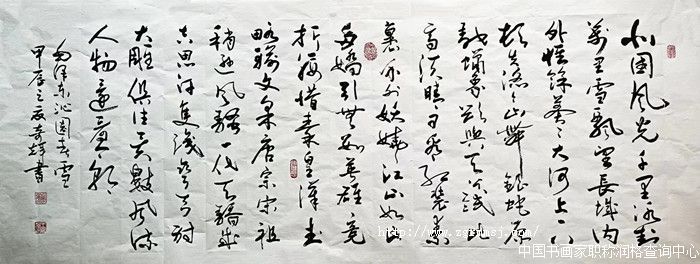 北国风光千里冰封
萬里雪飘望長城内
外惟餘莽莽大河上下
顿失滔滔山舞银蛇原
驰蜡象欲与天公试比
高须晴日看红装素
裹分外妖娆江山如此
多娇引無数英雄竞
折腰惜秦皇漢武
略输文采唐宗宋祖
稍逊风骚一代天骄成
吉思汗只识弯弓射
大雕俱往矣数风流
人物還看今朝
毛泽东沁园春雪
甲辰之夏 書
中国书画家职称润格查询中心